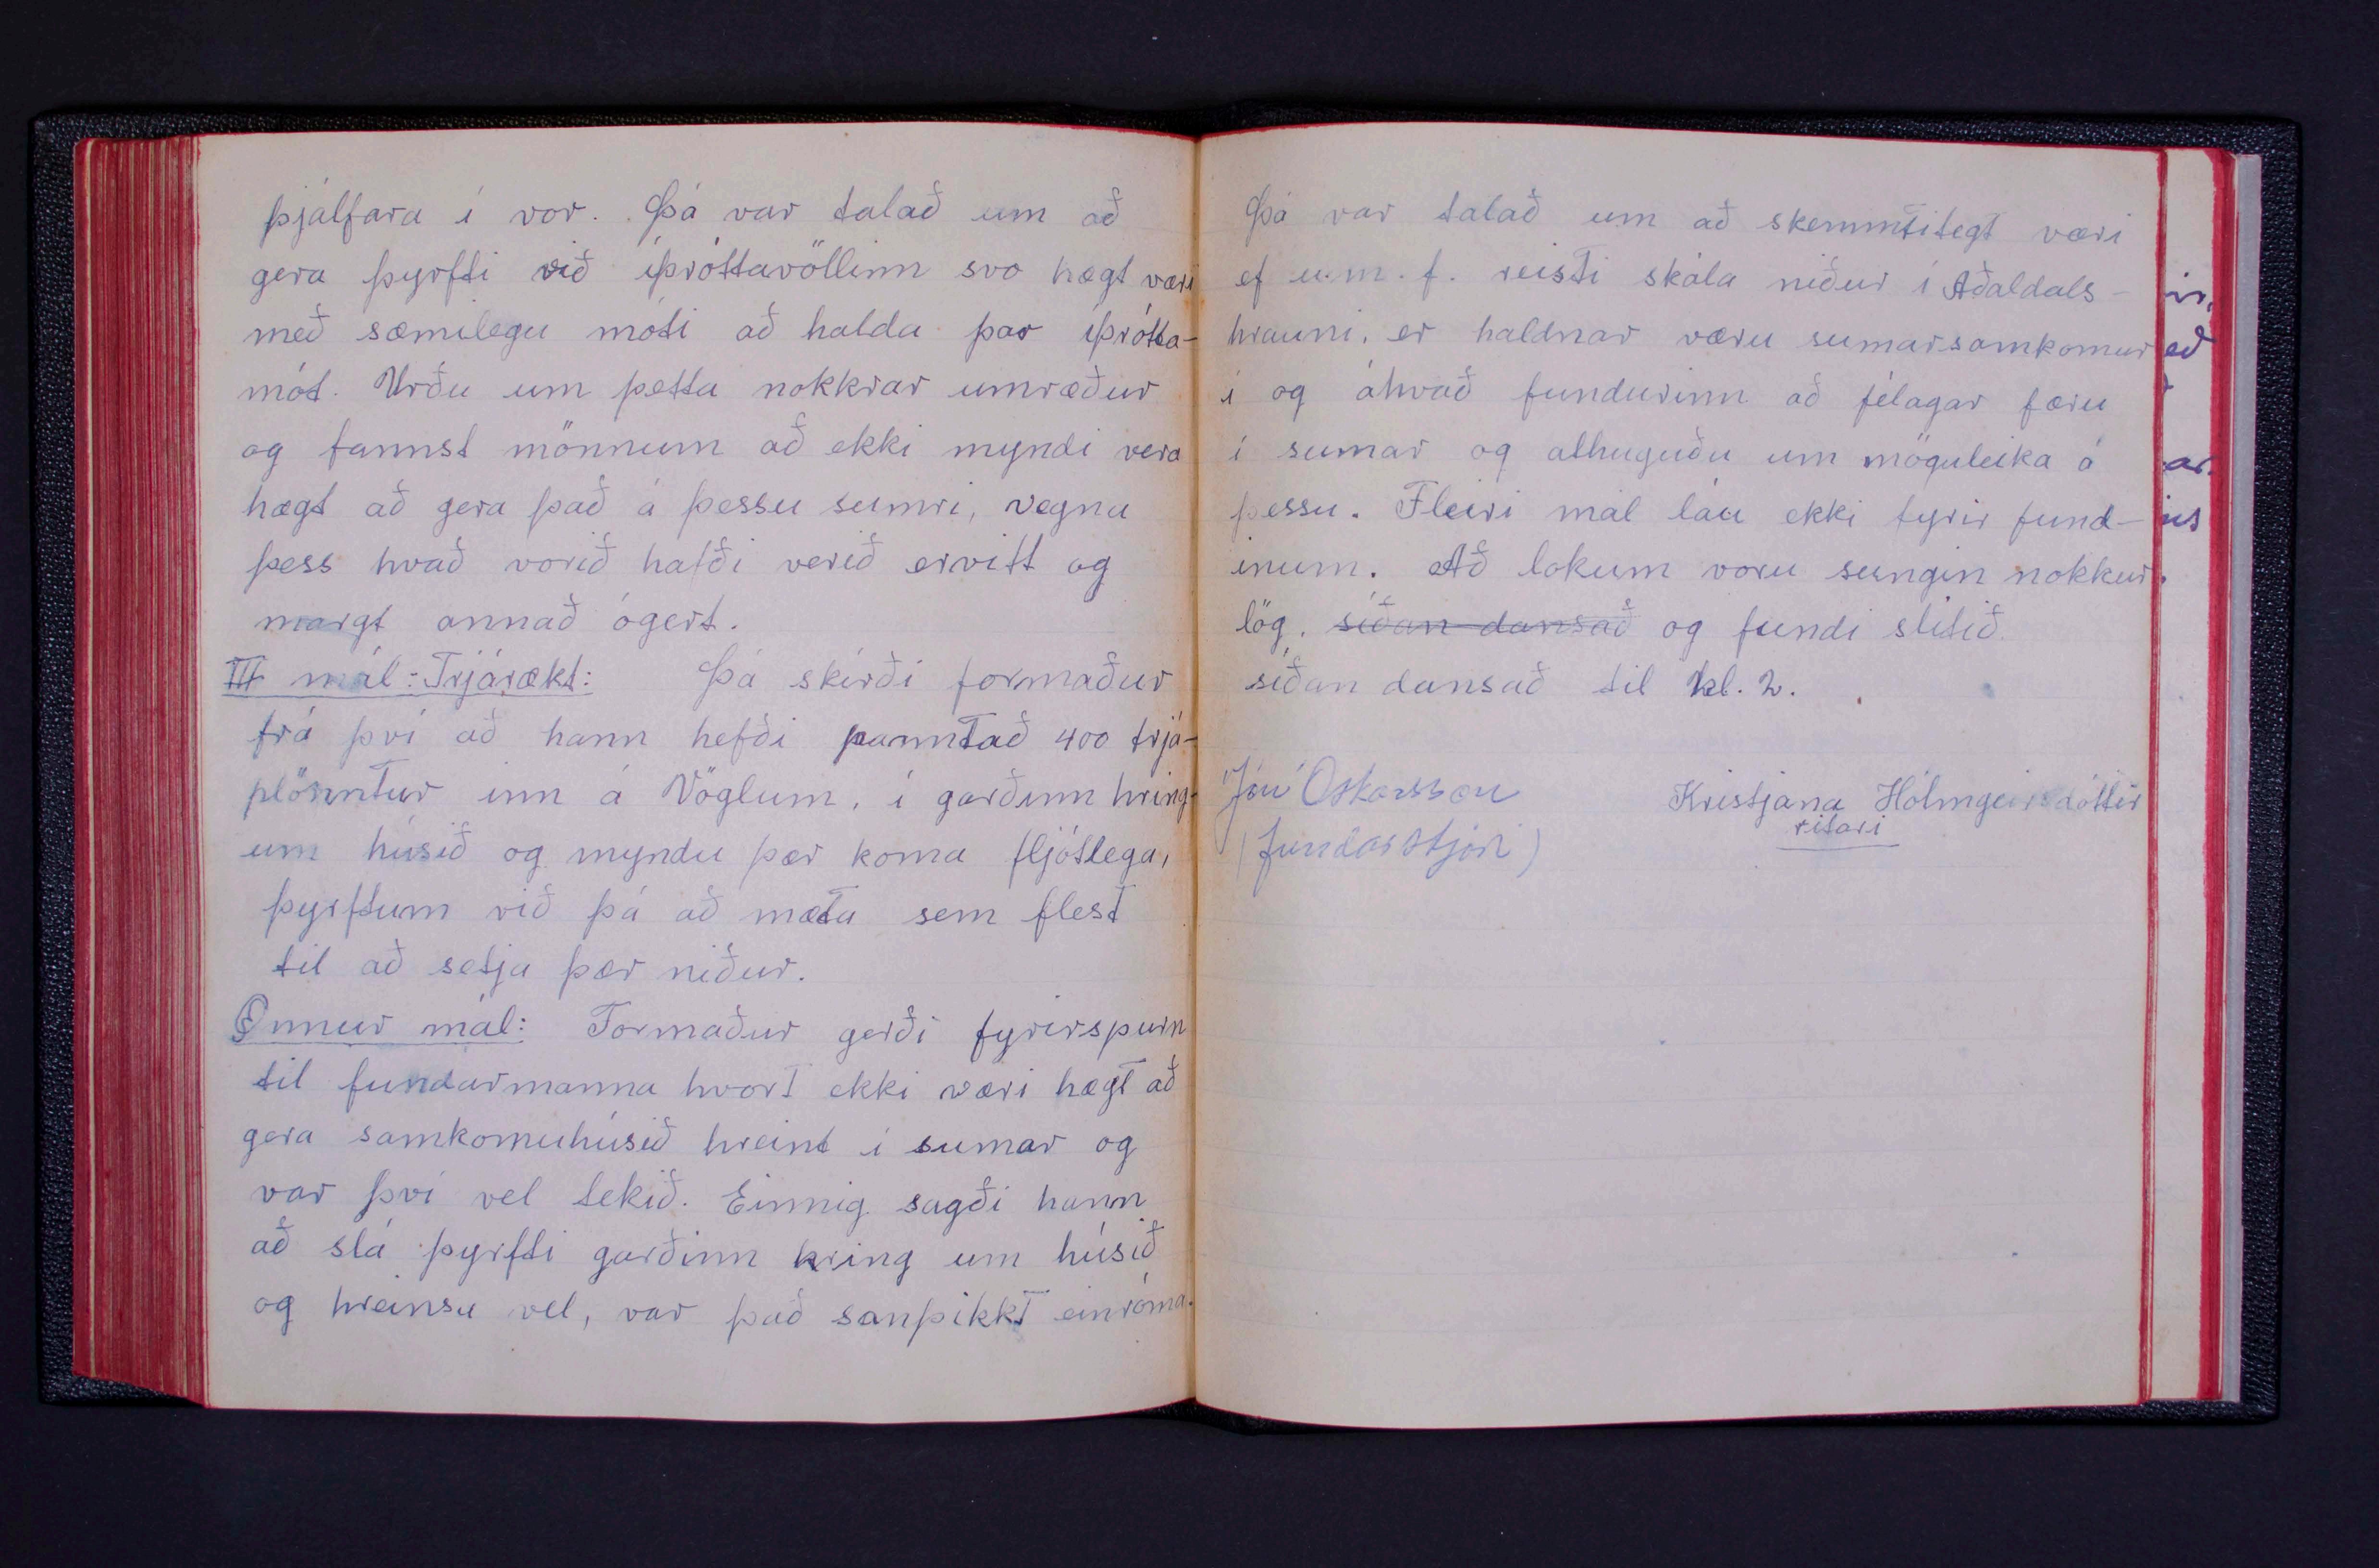 þjálfara í vor. Þá var talað um að
gera þyrfti við íþróttavöllinn svo hægt væri
með sæmilegu móti að halda þar íþrótta-
mót. Urðu um þetta nokkrar umræður
og fannst mönnum að ekki myndi vera
hægt að gera það á þessu sumri, vegna
þess hvað vorið hafði verið ervitt og
margt annað ógert.
III mál: Trjárækt: Þá skírði formaður
frá því að hann hefði panntað 400 trjá-
plönntur inn á Vöglum, í garðinn hring-
um húsið og myndu þær koma fljótlega,
þyrftum við þá að mæta sem flest
til að setja þær niður.
Önnur mál: Formaður gerði fyrirspurn
til fundarmanna hvort ekki væri hægt að
gera samkomuhúsið hreint í sumar og
var því vel tekið. Einnig sagði hann
að slá þyrfti garðinn kring um húsið
og hreinsa vel, var það sanþikkt einróma.
Þá var talað um að skemmtilegt væri
ef u.m.f. reisti skála niður í Aðaldals-
hrauni, er haldnar væru sumarsamkomur
í og áhvað fundurinn að félagar færu
í sumar og alhuguðu um möguleika á
þessu. Fleiri mál láu ekki fyrir fund-
inum. Að lokum voru sungin nokkur
lög, síðan dansað og fundi slitið.
síðan dansað til kl. 2.
Jón Óskarsson Kristjana Hólmgeirsdóttir
(fundarstjóri) ritari
ir,
að
ar.
us